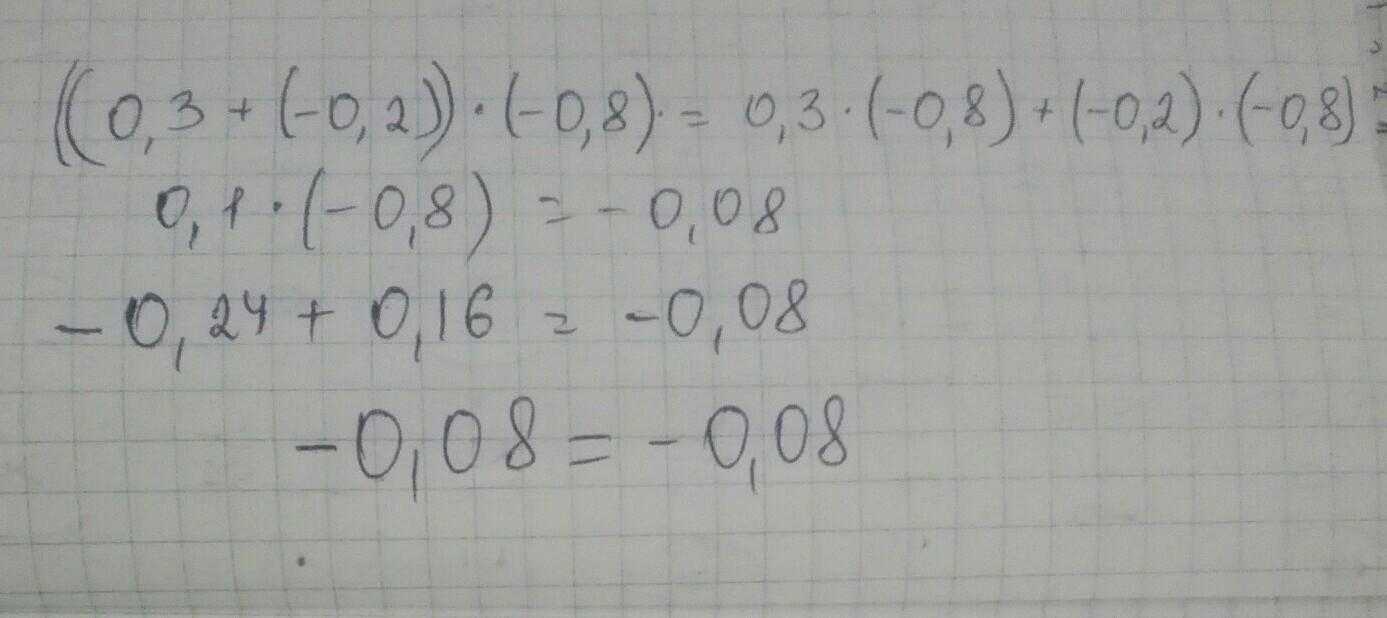 ((0,3 + (-0,2)) · (-0,8) · = 0,3 · (-0,8) + (-0,2) · (-0,8)
0,1 · (-0,8) = - 0,08
- 0,24 + 0,16 = -0,08
-0,08 = -0,08